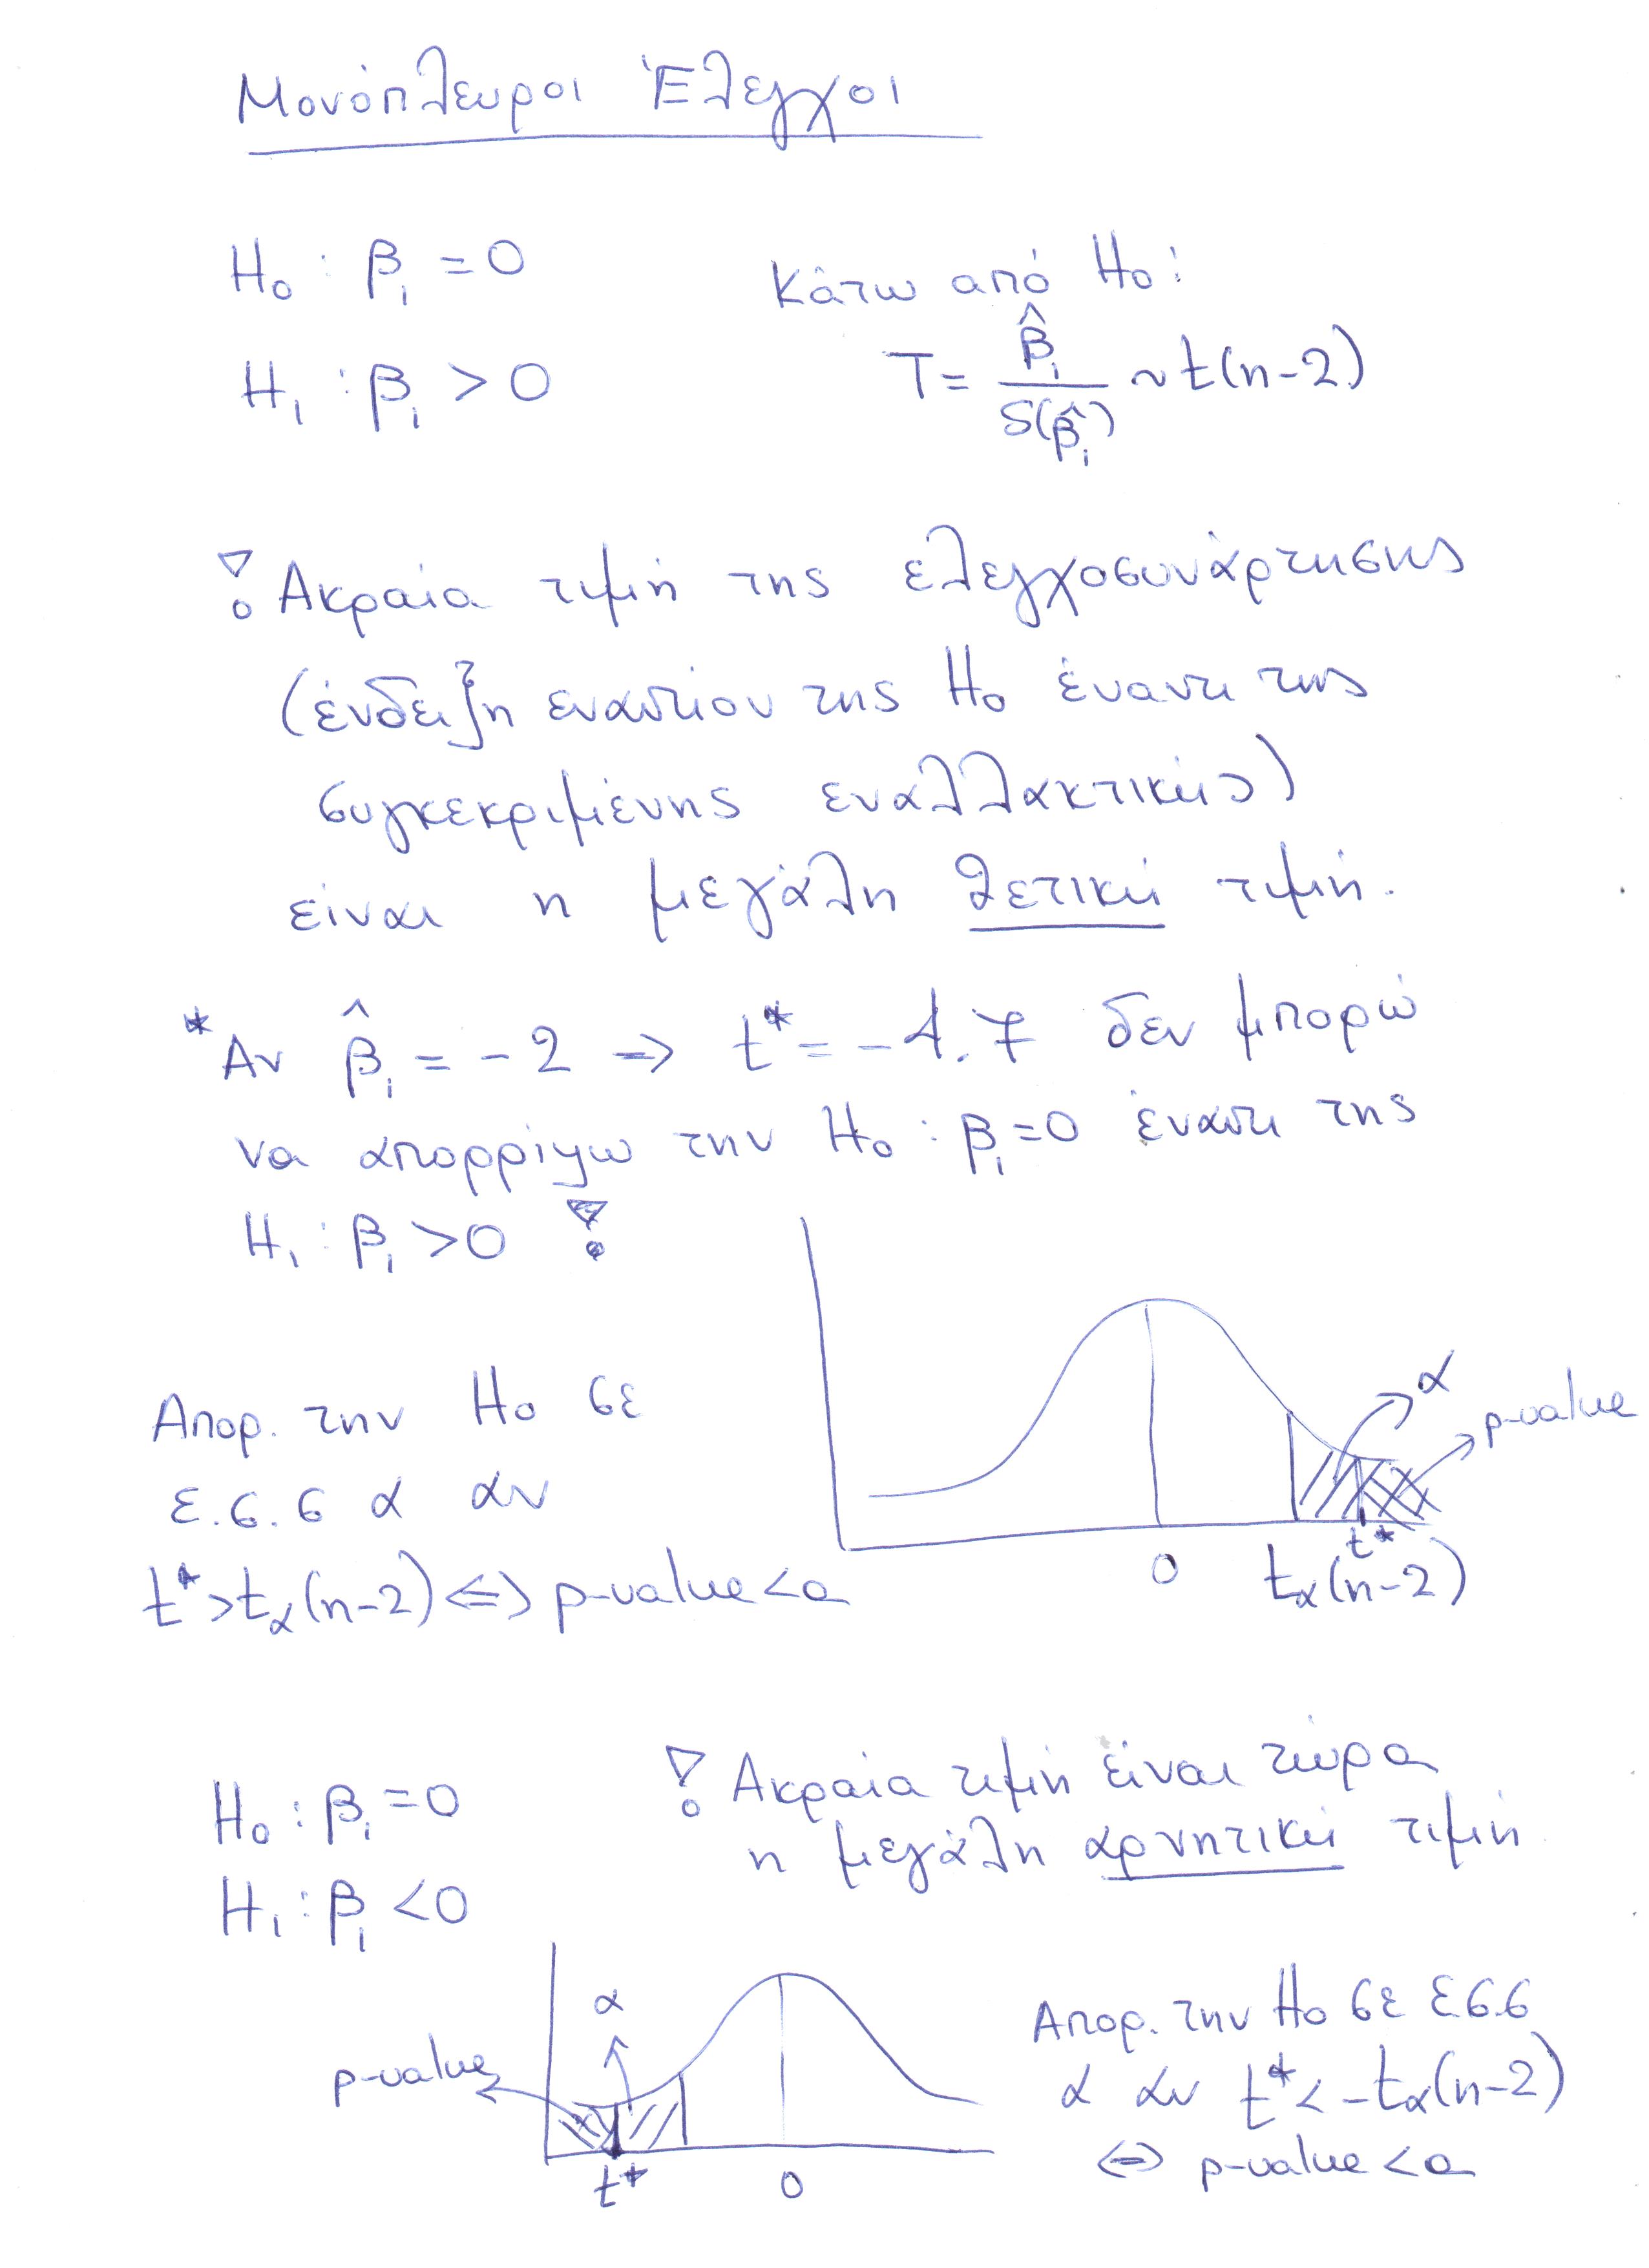 Μονόπλευροι Έλεγχοι
H₀ : β₁ = 0
H₁ : β₁ > 0
Κάτω από H₀:
T = β̂₁ / S(β̂₁) ~ t(n-2)
! Ακραία τιμή της ελεγχοσυνάρτησης
(ένδειξη εναντίον της H₀ έναντι της
συγκεκριμένης εναλλακτικής)
είναι η μεγάλη θετική τιμή.
*Αν β̂₁ = -2 ⇒ t* = -4.7 δεν μπορώ
να απορρίψω την H₀ : β₁=0 έναντι της
H₁ : β₁ >0 !
α
p-value
Απορ. την H₀ σε
ε.σ.σ α αν
t* > tα(n-2) ⇔ p-value < α
t*
0 tα(n-2)
H₀ : β₁ = 0
H₁ : β₁ < 0
! Ακραία τιμή είναι τώρα
η μεγάλη αρνητική τιμή
α
p-value
t* 0
Απορ. την H₀ σε ε.σ.σ
α αν t* < -tα(n-2)
⇔ p-value < α